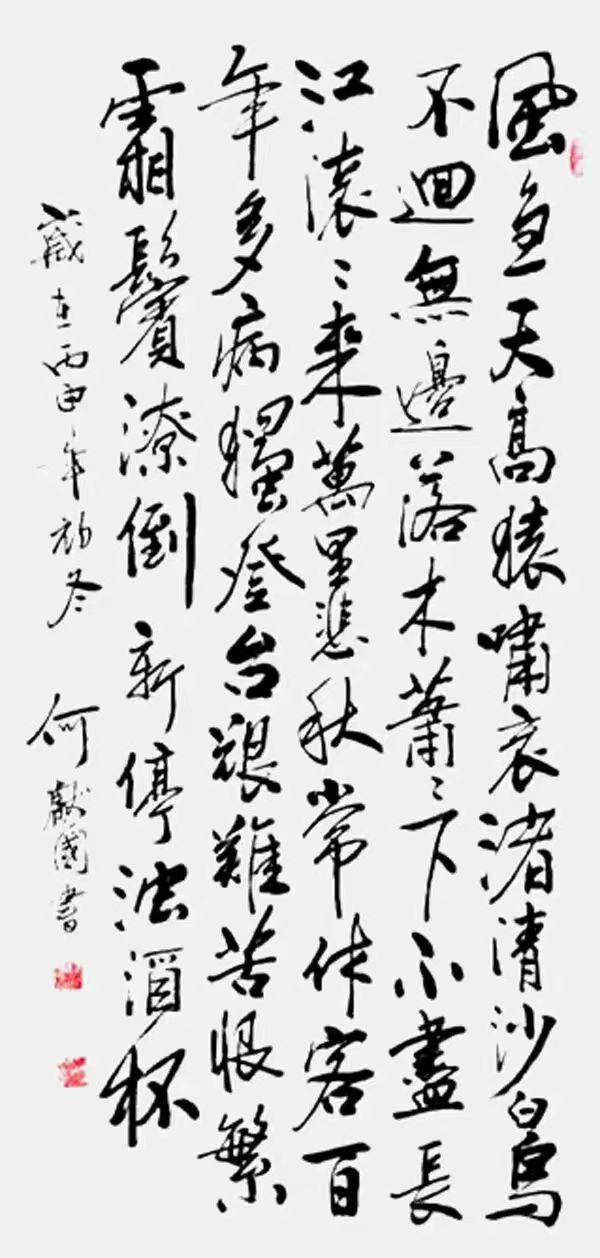 風急天高猿嘯哀渚清沙白鳥
不迴無邊落木蕭〻下不盡長
江滚〻來萬里悲秋常作客百
年多病獨登台艱難苦恨繁
霜鬢潦倒新停浊酒杯
歲在丙申年初冬 何獻國書